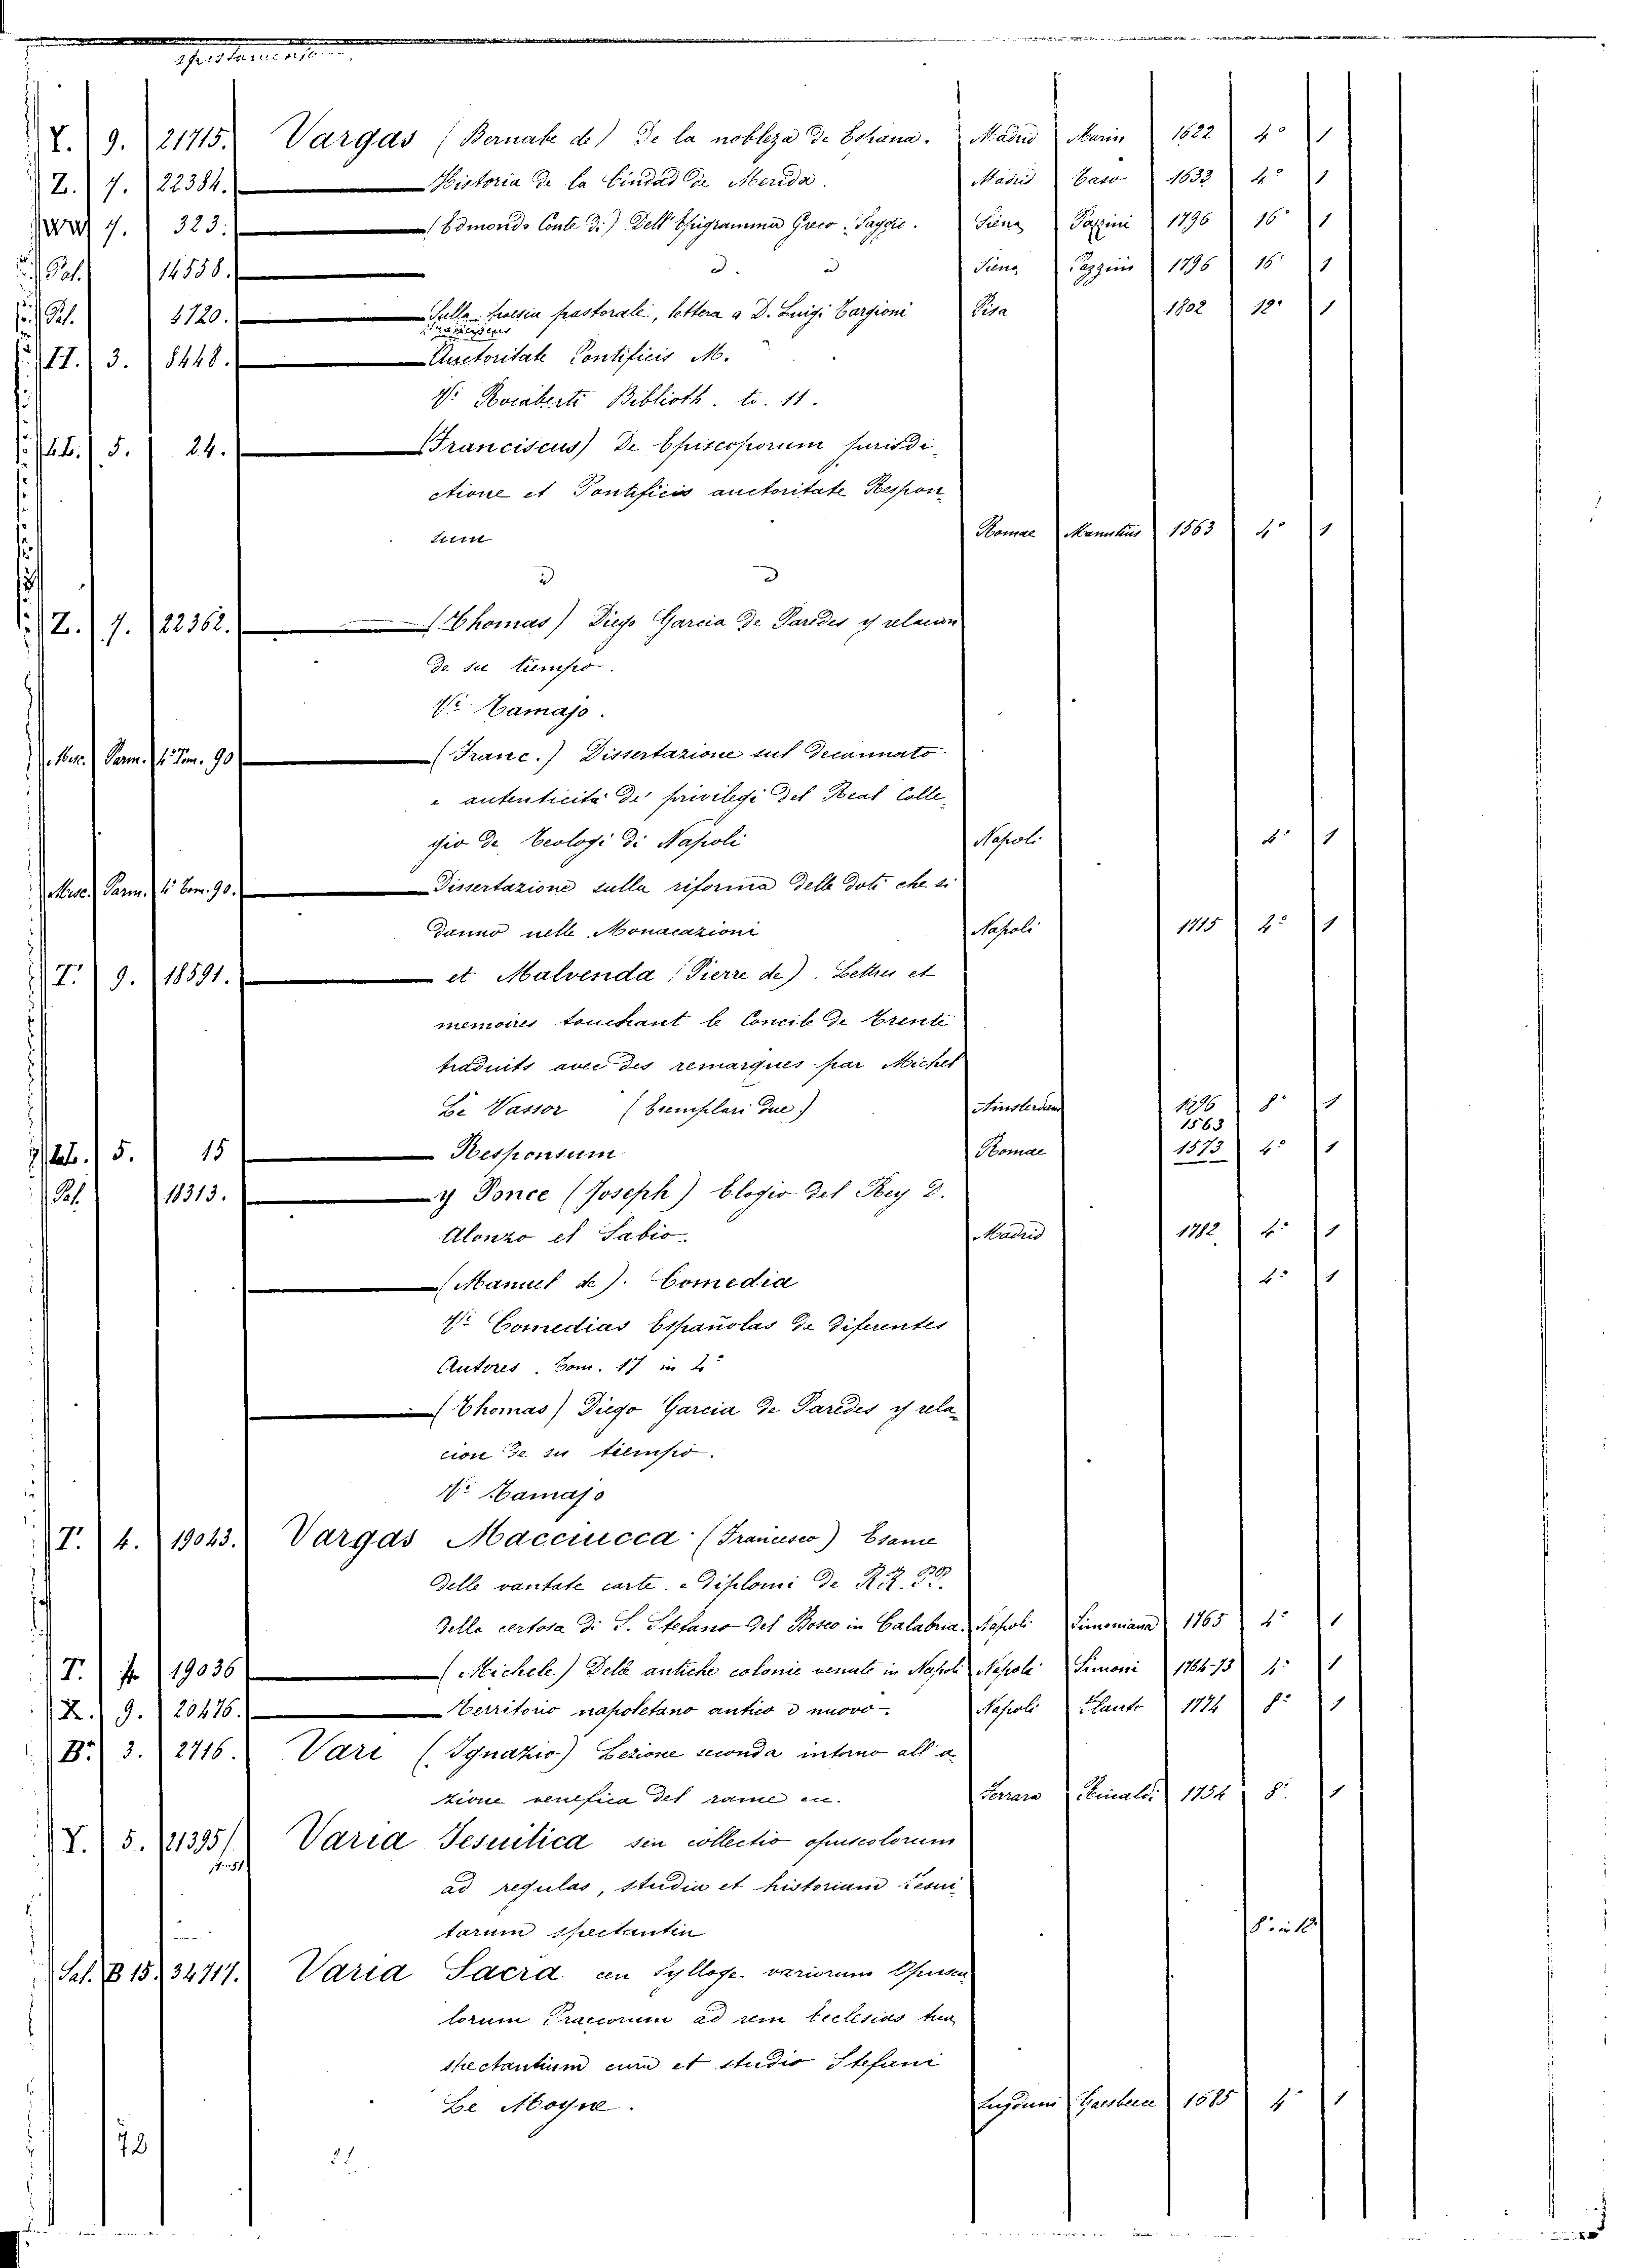 Y. 9. 21715. Vargas (Bernabe de) De la nobleza de España. Madrid Marin 1622 4° 1
Z. 7. 22384. Historia de la Ciudad de Merida. Madrid 1633 4° 1
7. 323. (Edmondo Conte di) Dell' Epigramma Greco. Saggio. Siena Pazzini 1796 16° 1
Pal. 14558. d. d Siena Pazzini 1796 16° 1
Pal. 4720. Sulla Poesia pastorale, lettera a D. Luigi Targioni Pisa 1802 12° 1
H. 3. 8448. Auctoritate Pontificis M.
V: Rocaberti Biblioth. to. 11.
5. 24. (Franciscus) De Episcoporum jurisdi-
ctione et Pontificis auctoritate Respon-
sum Romae Manutius 1563 4° 1
d d
Z. 7. 22362. (Thomas) Diego Garcia de Paredes y relacion
de su tiempo.
V: Tamajo.
Misc. Parm. 4° Tom. 90 (Franc.) Dissertazione sul Decannato
e autenticità de' privilegi del Real Colle-
gio de Teologi di Napoli Napoli 4° 1
Misc. Parm. 4° Tom. 90. Dissertazione sulla riforma delle doti che si
danno nelle Monacazioni Napoli 1715 4° 1
T. 9. 18591. et Malvenda (Pierre de). Lettres et
memoires touchant le Concile de Trente
traduits avec des remarques par Michel
Le Vassor (Esemplari due) Amsterdam 1696 8° 1
1563
5. 15 Responsum Romae 1573 4° 1
Pal. 11313. y Ponce (Joseph) Elogio del Rey D.
Alonzo el Sabio. Madrid 1782 4° 1
(Manuel de). Comedia 4° 1
V: Comedias Españolas de diferentes
Autores. Tom. 17 in 4°
(Thomas) Diego Garcia de Paredes y rela-
cion de su tiempo.
V: Tamajo
T. 4. 19043. Vargas Macciucca (Francesco) Esame
delle vantate carte e diplomi de R.R. P.P.
della certosa di S. Stefano del Bosco in Calabria. Napoli Simoniana 1765 4° 1
T. 19036 (Michele) Delle antiche colonie venute in Napoli Napoli Simoni 1764-73 4° 1
X. 9. 20476. Territorio napoletano antico e nuovo. Napoli 1774 8° 1
B. 3. 2716. Vari (Ignazio) Lezione seconda intorno all' a
zione venefica del rame ec. Ferrara Rinaldi 1754 8° 1
Y. 5. 21395/ Varia Jesuitica seu collectio opuscolorum
ad regulas, studia et historiam Jesui
tarum spectantia 8° in 12°
Sal. B 15. 34717. Varia Sacra seu Sylloge variorum Opuscu
lorum Graecorum ad rem Ecclesias tica
spectantium cura et studio Stefani
Le Moyne. Lugduni 1685 4° 1
72